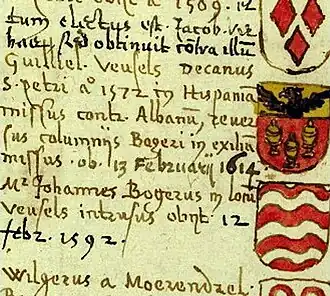 obijt a° 1569. 12
tum electus est. Jacob. ver
haer sed obtinuit contra illum
Guilliel. Veusels Decanus
S. petri a° 1572 in Hispaniã
missus contr. Albanũ, rever
sus columniis Bogeri in exiliũ
missus. ob. 13 Februarij 1614
Mr Johannes Bogerus in locũ
Veusels intrusus obijt. 12
febr. 1592.
Wilgerus a Moerendael.